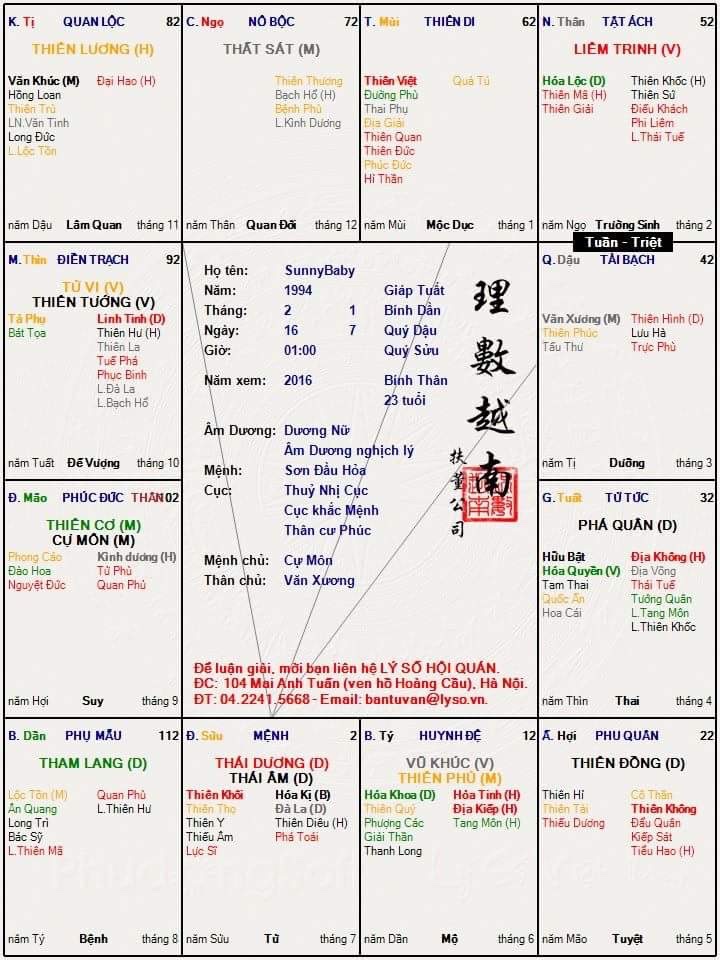 K. Tị QUAN LỘC 82
THIÊN LƯƠNG (H)
Văn Khúc (M) Đại Hao (H)
Hồng Loan
Thiên Trù
LN.Văn Tinh
Long Đức
L.Lộc Tồn
năm Dậu Lâm Quan tháng 11
C. Ngọ NÔ BỘC 72
THẤT SÁT (M)
Thiên Thương
Bạch Hổ (H)
Bệnh Phù
L.Kình Dương
năm Thân Quan Đới tháng 12
T. Mùi THIÊN DI 62
Thiên Việt Quả Tú
Đường Phù
Thai Phụ
Địa Giải
Thiên Quan
Thiên Đức
Phúc Đức
Hỉ Thần
năm Mùi Mộc Dục tháng 1
N. Thân TẬT ÁCH 52
LIÊM TRINH (V)
Hóa Lộc (D) Thiên Khốc (H)
Thiên Mã (H) Thiên Sứ
Thiên Giải Điếu Khách
Phi Liêm
L.Thái Tuế
năm Ngọ Trường Sinh tháng 2
Tuần - Triệt
M. Thìn ĐIỀN TRẠCH 92
TỬ VI (V)
THIÊN TƯỚNG (V)
Tả Phụ Linh Tinh (D)
Bát Tọa Thiên Hư (H)
Thiên La
Tuế Phá
Phục Binh
L.Đà La
L.Bạch Hổ
năm Tuất Đế Vượng tháng 10
Họ tên: SunnyBaby
Năm: 1994 Giáp Tuất
Tháng: 2 1 Bính Dần
Ngày: 16 7 Quý Dậu
Giờ: 01:00 Quý Sửu
Năm xem: 2016 Bính Thân
23 tuổi
Âm Dương: Dương Nữ
Âm Dương nghịch lý
Mệnh: Sơn Đầu Hỏa
Cục: Thuỷ Nhị Cục
Cục khắc Mệnh
Thân cư Phúc
Mệnh chủ: Cự Môn
Thân chủ: Văn Xương
理數越南
扶董公司
Để luận giải, mời bạn liên hệ LÝ SỐ HỘI QUÁN.
ĐC: 104 Mai Anh Tuấn (ven hồ Hoàng Cầu), Hà Nội.
ĐT: 04.2241.5668 - Email: bantuvan@lyso.vn.
Q. Dậu TÀI BẠCH 42
Văn Xương (M) Thiên Hình (D)
Thiên Phúc Lưu Hà
Tấu Thư Trực Phù
năm Tị Dưỡng tháng 3
Đ. Mão PHÚC ĐỨC THÂN 102
THIÊN CƠ (M)
CỰ MÔN (M)
Phong Cáo Kình dương (H)
Đào Hoa Tử Phù
Nguyệt Đức Quan Phủ
năm Hợi Suy tháng 9
G. Tuất TỬ TỨC 32
PHÁ QUÂN (D)
Hữu Bật Địa Không (H)
Hóa Quyền (V) Địa Võng
Tam Thai Thái Tuế
Quốc Ấn Tướng Quân
Hoa Cái L.Tang Môn
L.Thiên Khốc
năm Thìn Thai tháng 4
B. Dần PHỤ MẪU 112
THAM LANG (D)
Lộc Tồn (M) Quan Phù
Ân Quang L.Thiên Hư
Long Trì
Bác Sỹ
L.Thiên Mã
năm Tý Bệnh tháng 8
Đ. Sửu MỆNH 2
THÁI DƯƠNG (D)
THÁI ÂM (D)
Thiên Khôi Hóa Kị (B)
Thiên Thọ Đà La (D)
Thiên Y Thiên Diêu (H)
Thiếu Âm Phá Toái
Lực Sĩ
năm Sửu Tử tháng 7
B. Tý HUYNH ĐỆ 12
VŨ KHÚC (V)
THIÊN PHỦ (M)
Hóa Khoa (D) Hỏa Tinh (H)
Thiên Quý Địa Kiếp (H)
Phượng Các Tang Môn (H)
Giải Thần
Thanh Long
năm Dần Mộ tháng 6
Ấ. Hợi PHU QUÂN 22
THIÊN ĐỒNG (D)
Thiên Hỉ Cô Thần
Thiên Tài Thiên Không
Thiếu Dương Đẩu Quân
Kiếp Sát
Tiểu Hao (H)
năm Mão Tuyệt tháng 5